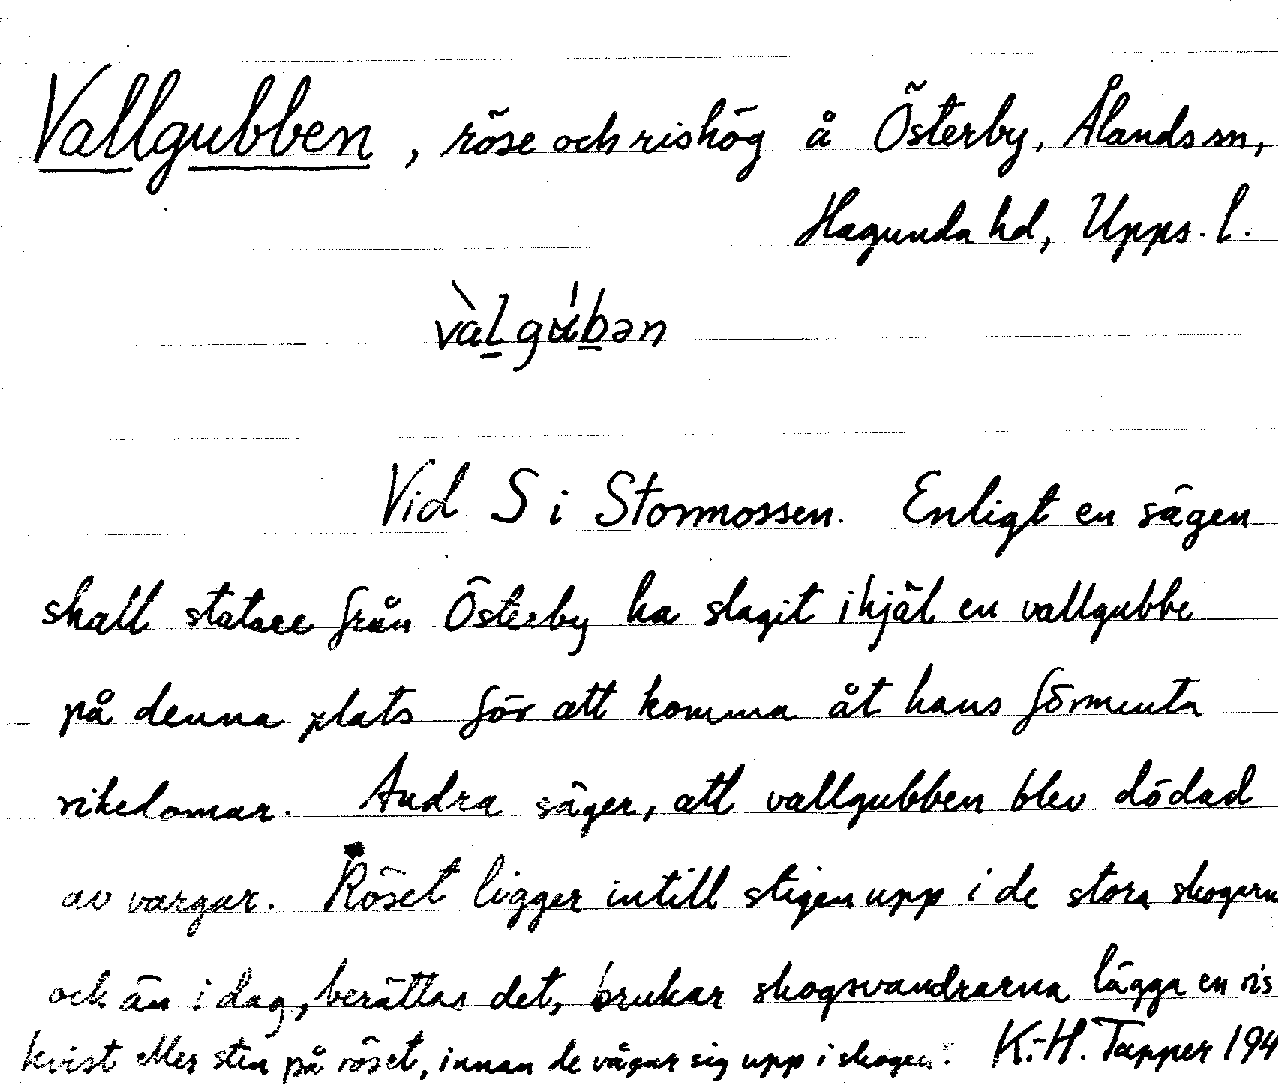 Vallgubben, röse och rishög å Österby, Ålands sn,
Hagunda hd, Upps. l.
vàlgúbən
Vid S i Stormossen. Enligt en sägen
skall statare från Österby ha slagit ihjäl en vallgubbe
på denna plats för att komma åt hans förmenta
rikedomar. Andra säger, att vallgubben blev dödad
av vargar. Röset ligger intill stigen upp i de stora skogarn
och än i dag, berättas det, brukar skogsvandrarna lägga en ris
kvist eller sten på röset, innan de vågar sig upp i skogen. K.-H. Tapper 194